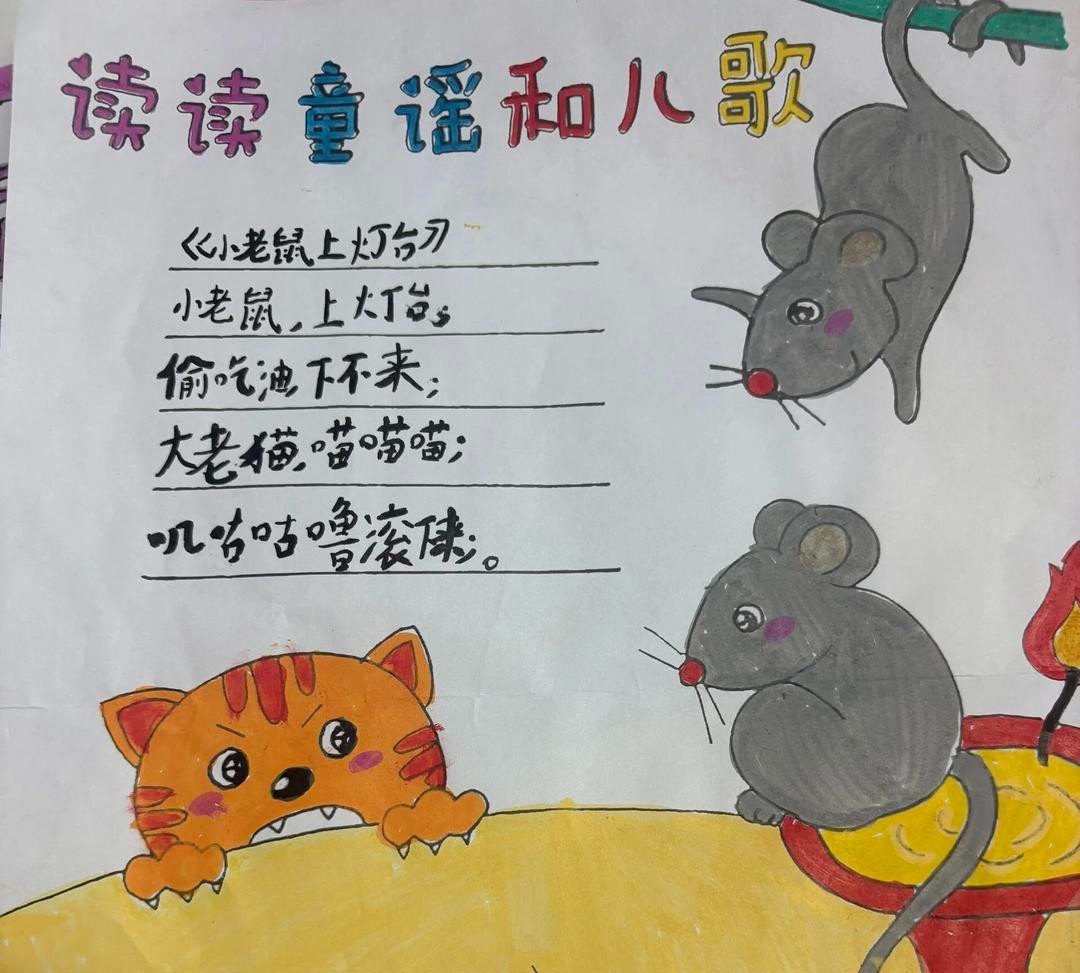 读读童谣和儿歌
《小老鼠上灯台》
小老鼠,上灯台;
偷吃油,下不来;
大老猫,喵喵喵;
叽咕咕噜滚。